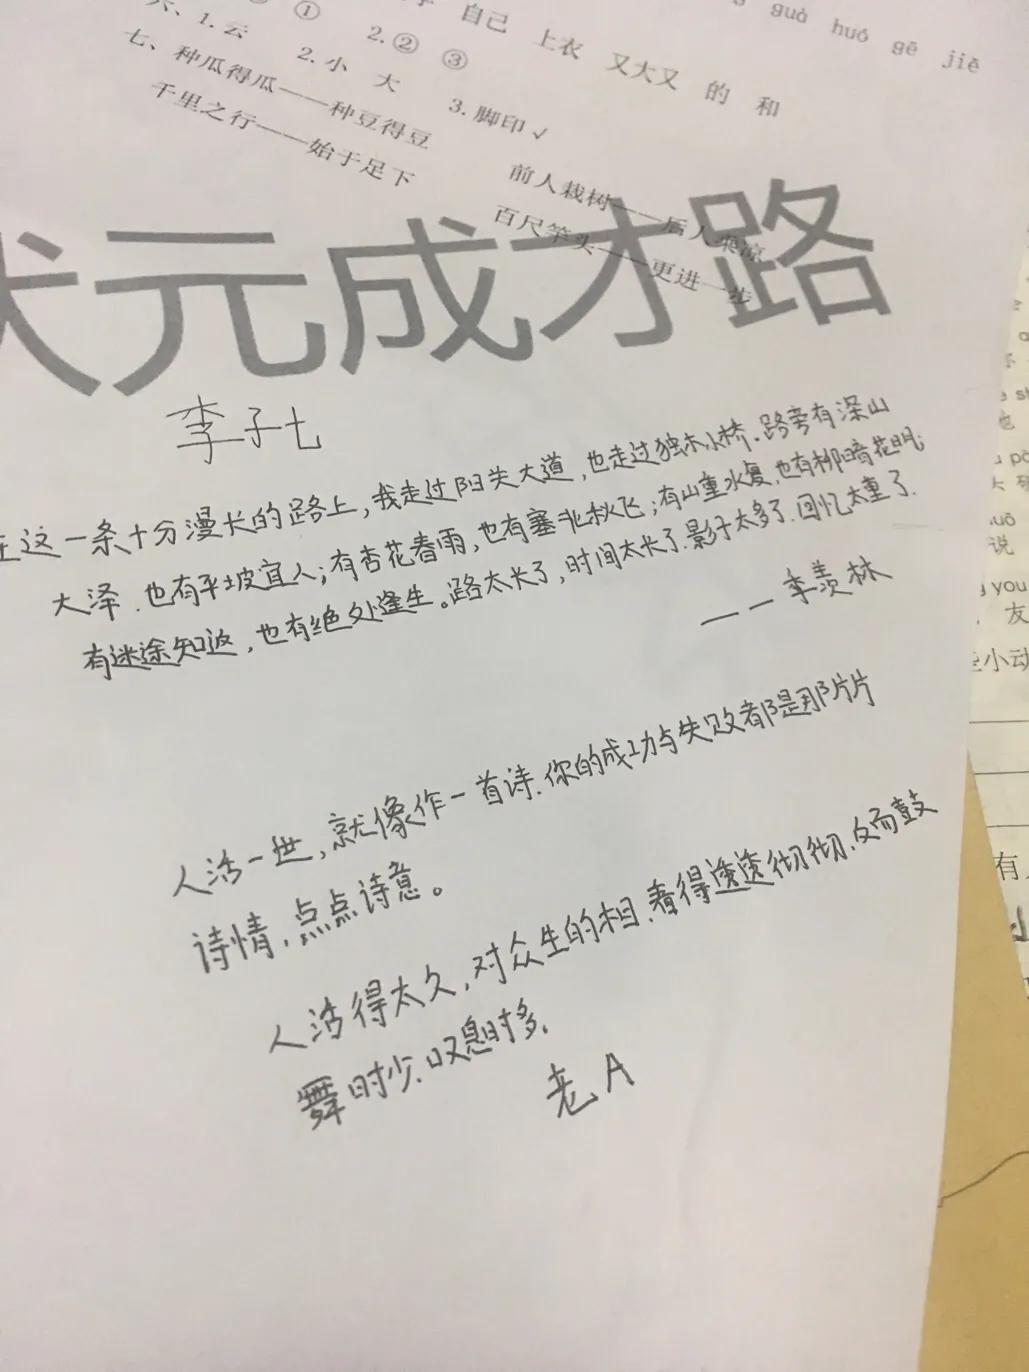 自己 上衣 又大又 的 和
guò huó gē jiē
六、1.云 2.小 大 3.脚印√
① 2.② ③
七、种瓜得瓜——种豆得豆 前人栽树——后人乘凉
千里之行——始于足下 百尺竿头——更进一步
状元成才路
李子七
在这一条十分漫长的路上，我走过阳关大道，也走过独木小桥.路旁有深山
大泽.也有平坡宜人；有杏花春雨，也有塞北秋飞；有山重水复，也有柳暗花明；
有迷途知返，也有绝处逢生。路太长了，时间太长了.影子太多了.回忆太重了.
——季羡林
人活一世，就像作一首诗.你的成功与失败者都是那片片
诗情，点点诗意。
人活得太久，对众生的相.看得透透彻彻.反而鼓
舞时少.叹息时多.
老A
说
you
友
小动
有